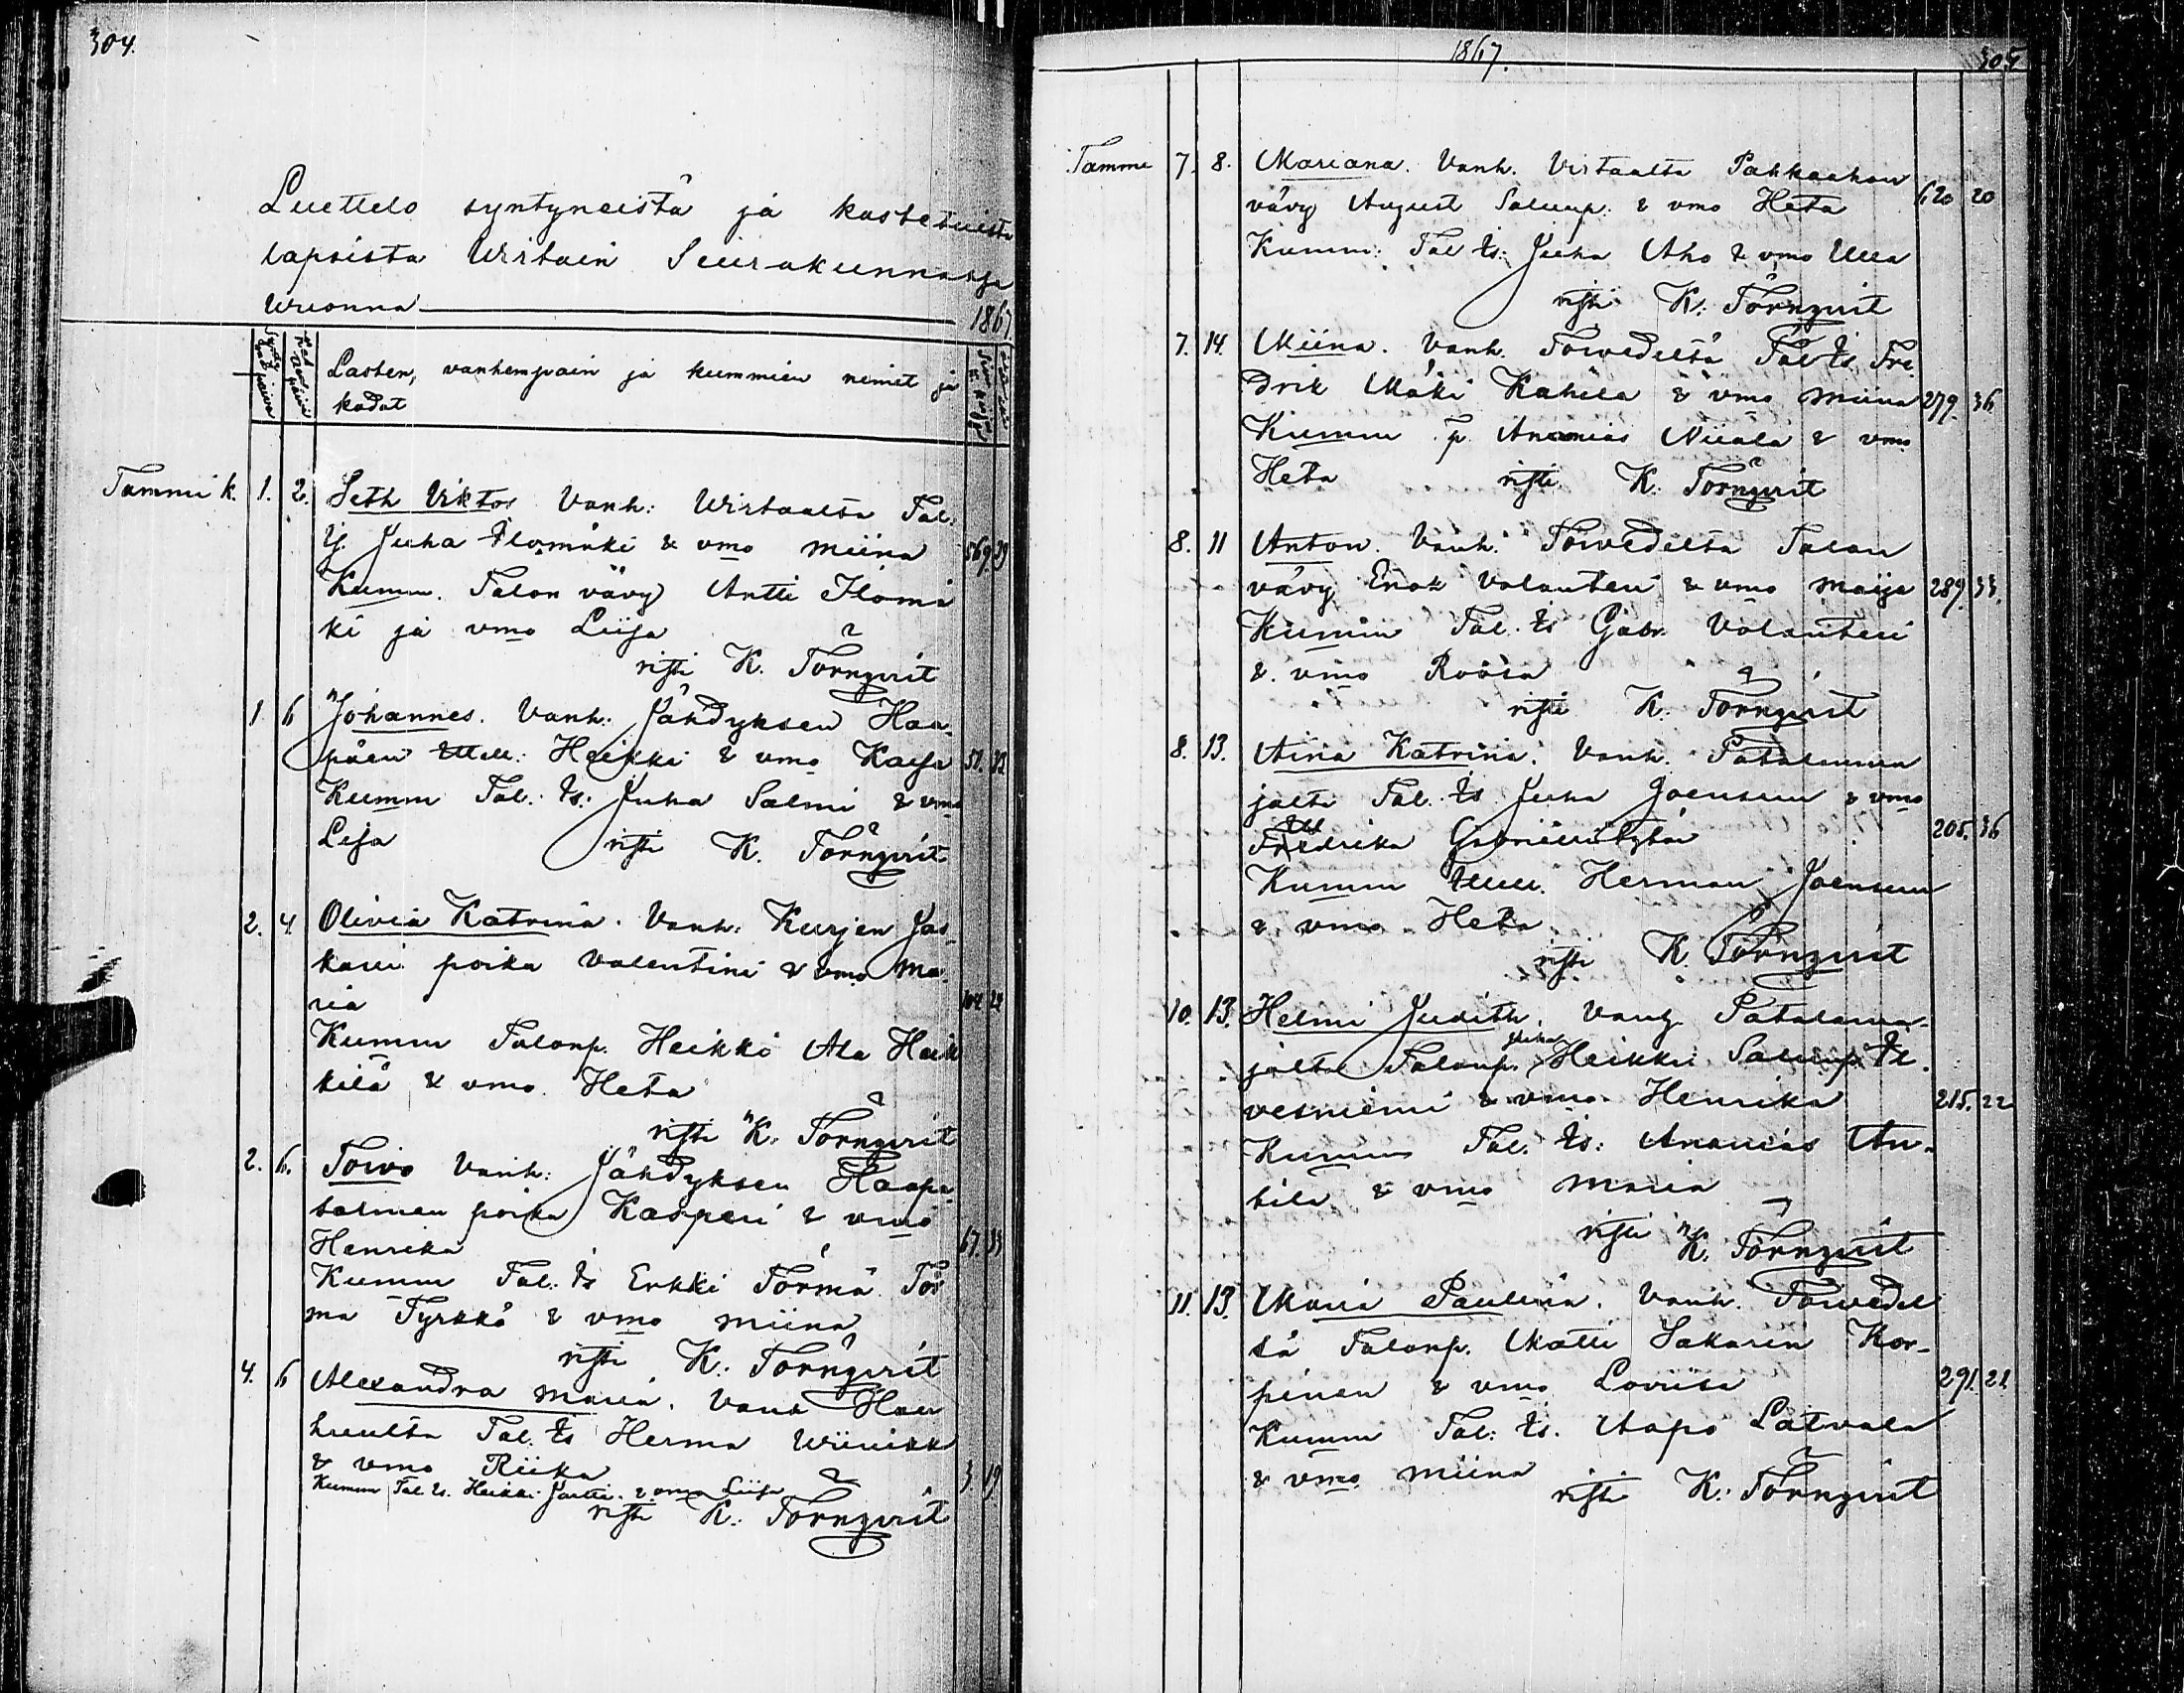 304.
Luettelo syntyneistä ja kastetuista
lapsista Wirtain Seurakunnassa
wuonna 1867
Lasten, vanhempain ja kummien nimet ja
kodat
Tammi k. 1. 2. Seth Viktor Vanh: Wirtaalta Tal:
Y. Juha Ilomäki & vmo Miina 569. 29
Kumm. Talon vävy Antti Ilomä
ki ja vmo Liisa
risti K. Törnqvist
1 6 Johannes. Vanh: Jähdyksen Haa-
päen Heikki & vmo Kaisa 51. 32
Kumm Tal. ts: Juha Salmi & vmo
Lesa risti K. Törnqvist
2. 4. Olivia Katrina. Vanh: Kurjen Jas
kari poika Valentini & vmo Ma
ria 104 24
Kumm Talonp. Heikki Ala Heik
kilä & vmo Heta
risti K: Törnqvist
2. 6. Toivo Vanh: Jähdyksen Haapa
salmen poika Kasperi & vmo
Henrika 67. 33
Kumm Tal: ts Erkki Törmä Tör
ma Tyrkkö & vmo Miina
risti K: Törnqvist
4. 6 Alexandra Maria. Vanh Hau
huulta Tal. ts Herma Wiinikk
& vmo Riika 3. 19.
Kumm Tal ts. Heikki & vmo Liisa
risti K: Törnqvist
1867. 305
Tamme 7. 8. Mariana. Vanh. Virtaalta Pakkaahon
vävy August Salup: & vmo Heta 620 20
Kumm: Tal ts: Juha Aho & vmo Ulla
risti K: Törnqvist
7. 14. Miina. Vanh. Toivedeltä Tal ts. Fre
drik Mäki Kahila & vmo Miina 279. 36
Kumm Tp. Ananias Niialä & vmo
Heta risti K: Törnqvist
8. 11 Anton. Vanh: Toivedeltä Talon
vävy Enok Valanteri & vmo Maija 289. 33.
Kumm Tal. ts Gabr. Valanteri
& vmo Roosa
risti K: Törnqvist
8. 13. Aina Katrina. Vanh. Patalamma
jalta Tal. ts Juha Joensuu & vmo
Fredrika 205. 36
Kumm Herman Joensuu
& vmo Heta
risti K. Törnqvist
10. 13. Helmi Judith. Vanh. Patalamma-
Juha
jalta Talonp. Heikki
vesniemi & vmo. Henrika 215. 22
Kumm Tal. ts: Ananias An-
tila & vmo Maria
risti K. Törnqvist
11. 13. Maria Paulina. Vanh. Toivedel
tä Talonp. Matti Sakarin Kor-
pinen & vmo Loviisa 291. 21
Kumm Tal: ts. Aapo Latvala
& vmo Miina
risti K: Törnqvist